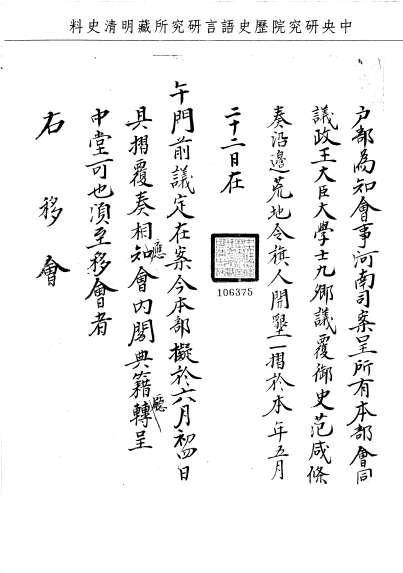 中央研究院歷史語言研究所藏明清史料
戶部為知會事河南司案呈所有本部會同
議政王大臣大學士九卿議覆御史范咸條
奏沿邊荒地令旗人開墾一摺於本年五月
二十二日在
午門前議定在案今本部擬於六月初四日
具摺覆奏相應知會內閣典籍廳轉呈
中堂可也須至移會者
右移會
106375